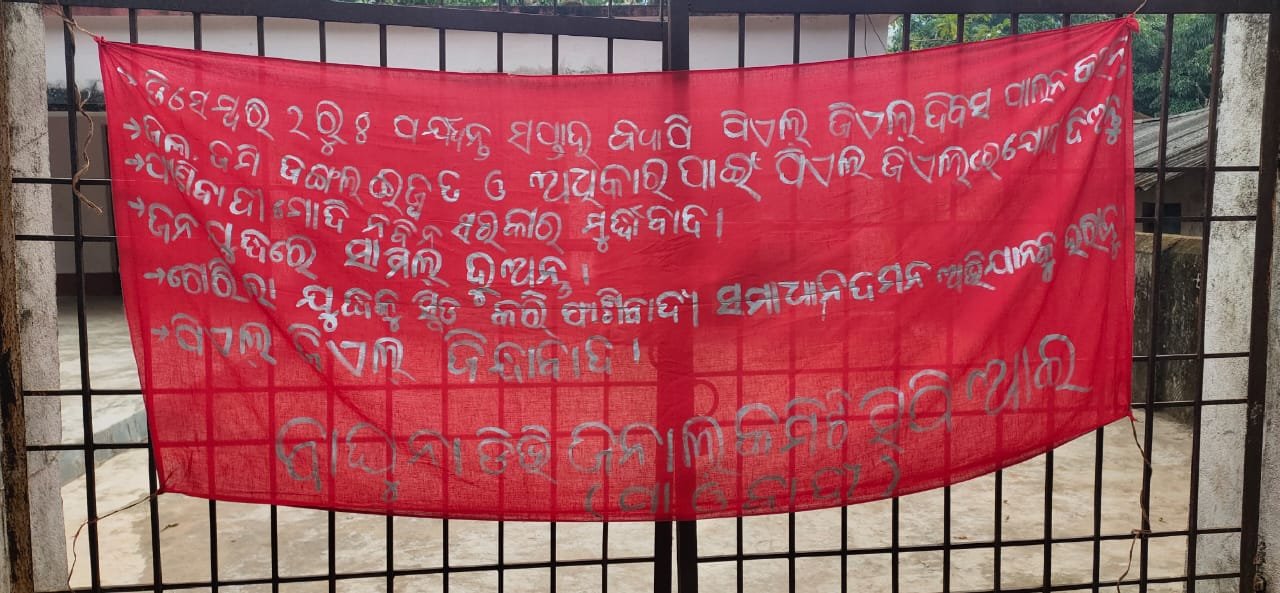 → ଡିସେମ୍ବର ୨ରୁ ୫ ପର୍ଯ୍ୟନ୍ତ ସପ୍ତାହ ବ୍ୟାପି ପିଏଲ୍ ଜିଏଲ୍ ଦିବସ ପାଳନ କରନ୍ତୁ
→ ଜଲ, ଜମି ଜଙ୍ଗଲ ଇଜ୍ଜତ ଓ ଅଧିକାର ପାଇଁ ପିଏଲ ଜିଏଲ୍‌ରେ ଯୋଗ ଦିଅନ୍ତୁ
→ ଫାଶିବାଦୀ ମୋଦି ନବିନ ସରକାର ମୁର୍ଦ୍ଦାବାଦ।
→ ଜନ ଯୁଦ୍ଧରେ ସାମିଲ୍ ହୁଅନ୍ତୁ।
→ ଗେରିଲା ଯୁଦ୍ଧକୁ କରି ଫାଶିବାଦୀ ସମାଧାନ ଦମନ ଅଭିଯାନକୁ ହରାନ୍ତୁ
→ ପିଏଲ୍ ଜିଏଲ୍ ଜିନ୍ଦାବାଦ।
ଡିଭିଜନାଲ୍ କମିଟି ସିପିଆଇ
(ମାଓବାଦୀ)